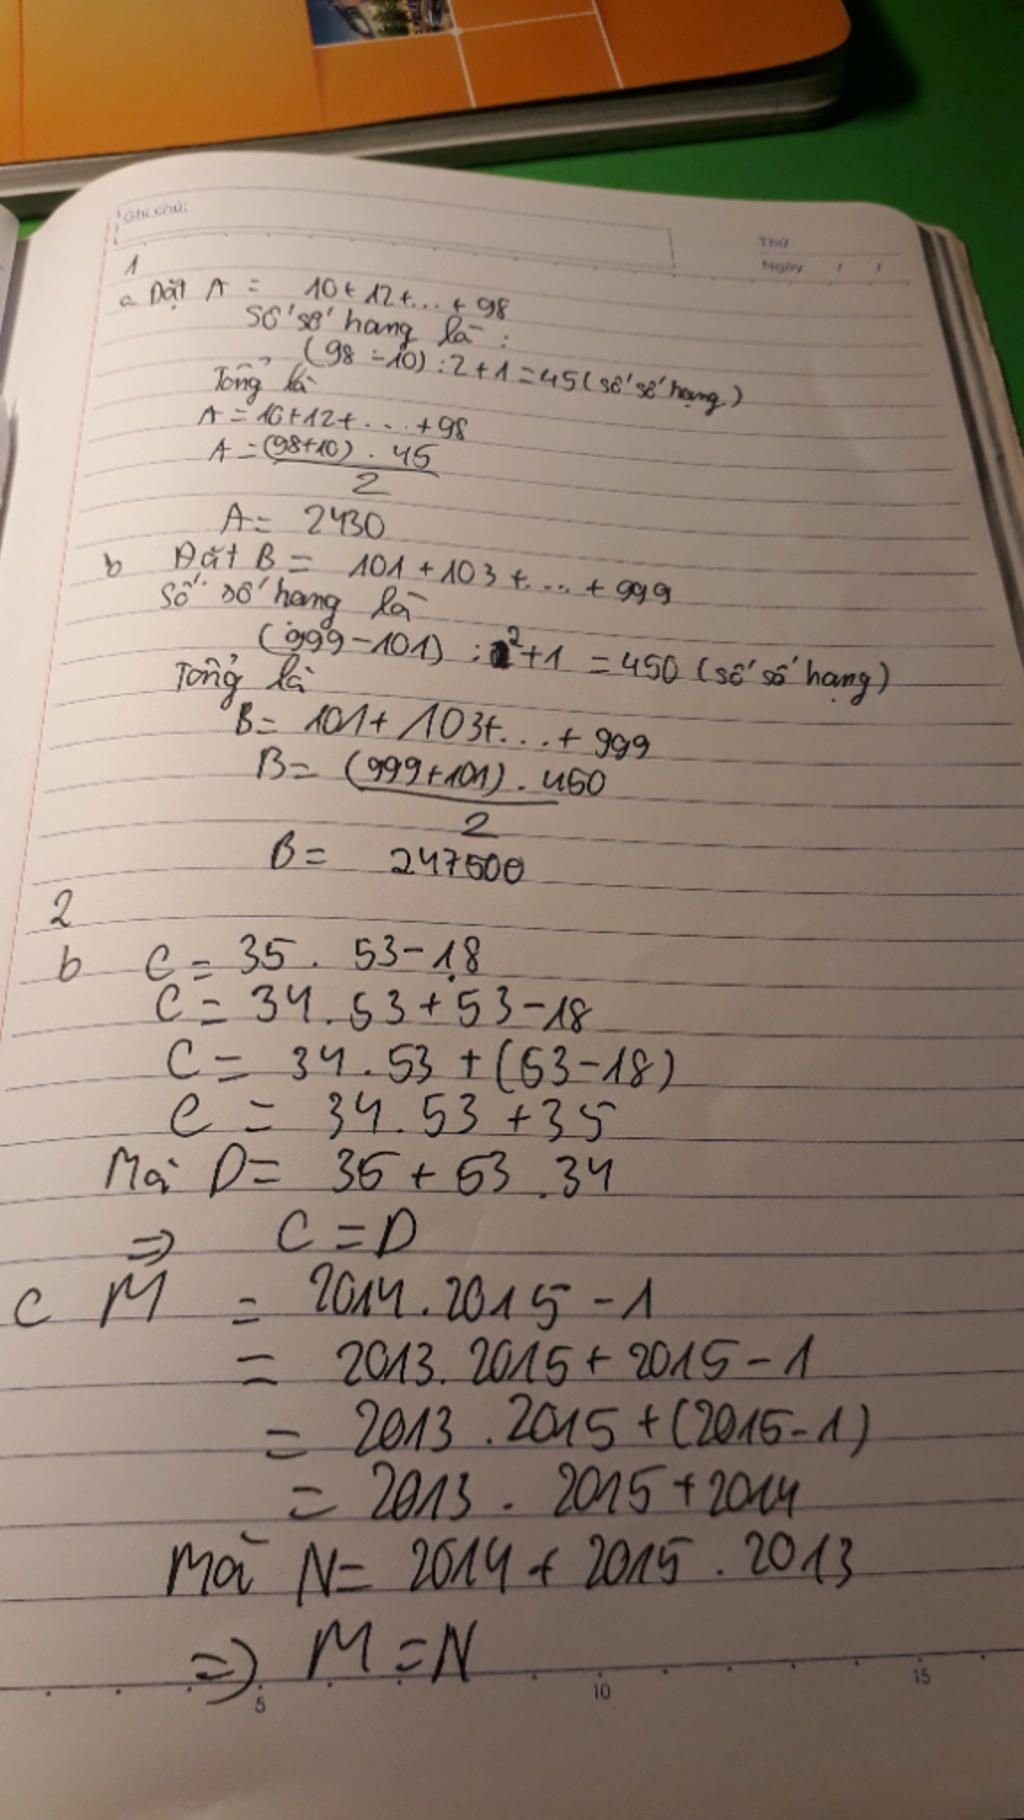 Ghi chú:
Thứ
Ngày / /
1
a Đặt A = 10+12+...+98
Số số hang là:
(98-10):2+1=45(số số hạng)
Tổng là
A=10+12+...+98
A=(98+10).45
2
A= 2430
b Đặt B= 101+103+...+999
Số số hang là
(999-101):2+1=450(số số hạng)
Tổng là
B= 101+103+...+999
B= (999+101).450
2
B= 247500
2
b C= 35. 53-18
C= 34.53+53-18
C= 34.53+(53-18)
C= 34.53+35
Mà D= 35+53.34
=> C=D
c M = 2014.2015-1
= 2013.2015+2015-1
= 2013.2015+(2015-1)
= 2013. 2015+2014
Mà N= 2014+2015.2013
=> M=N
5 10 15